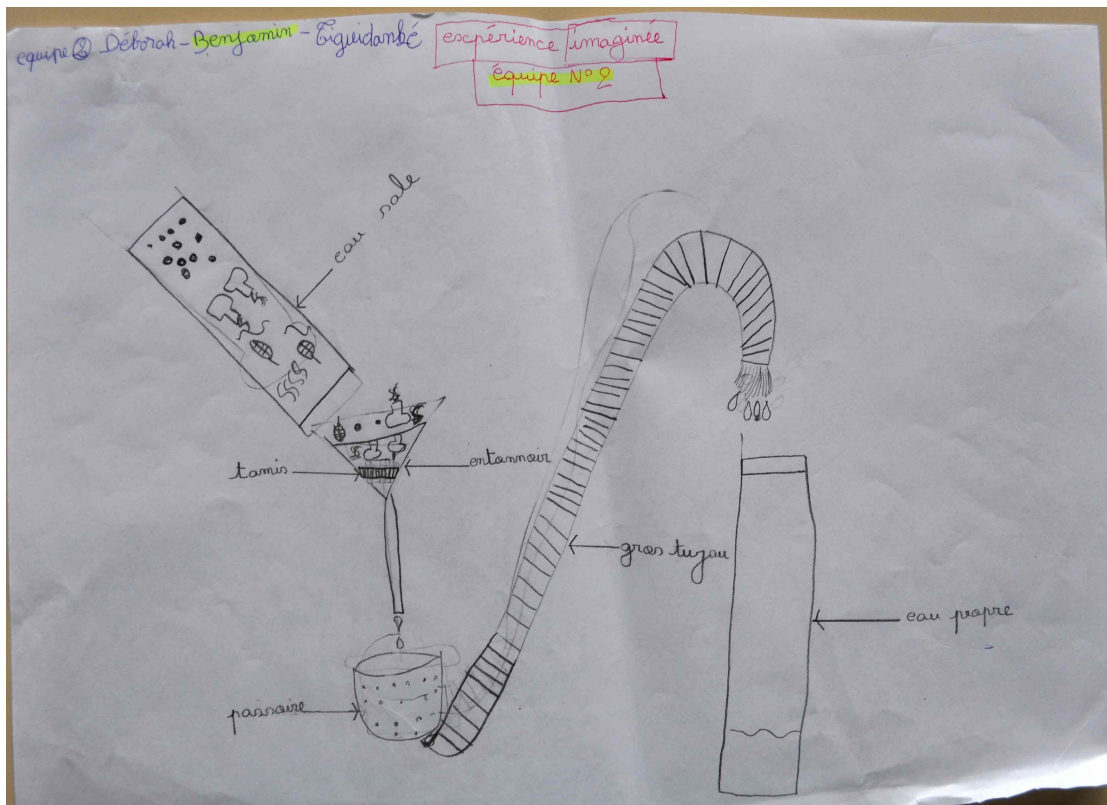 equipe ② Déborah - Benjamin - Tiguidanké
escpérience imaginée
équipe N° 2
eau sale
tamis
entonnoir
gros tuyau
eau propre
passoire